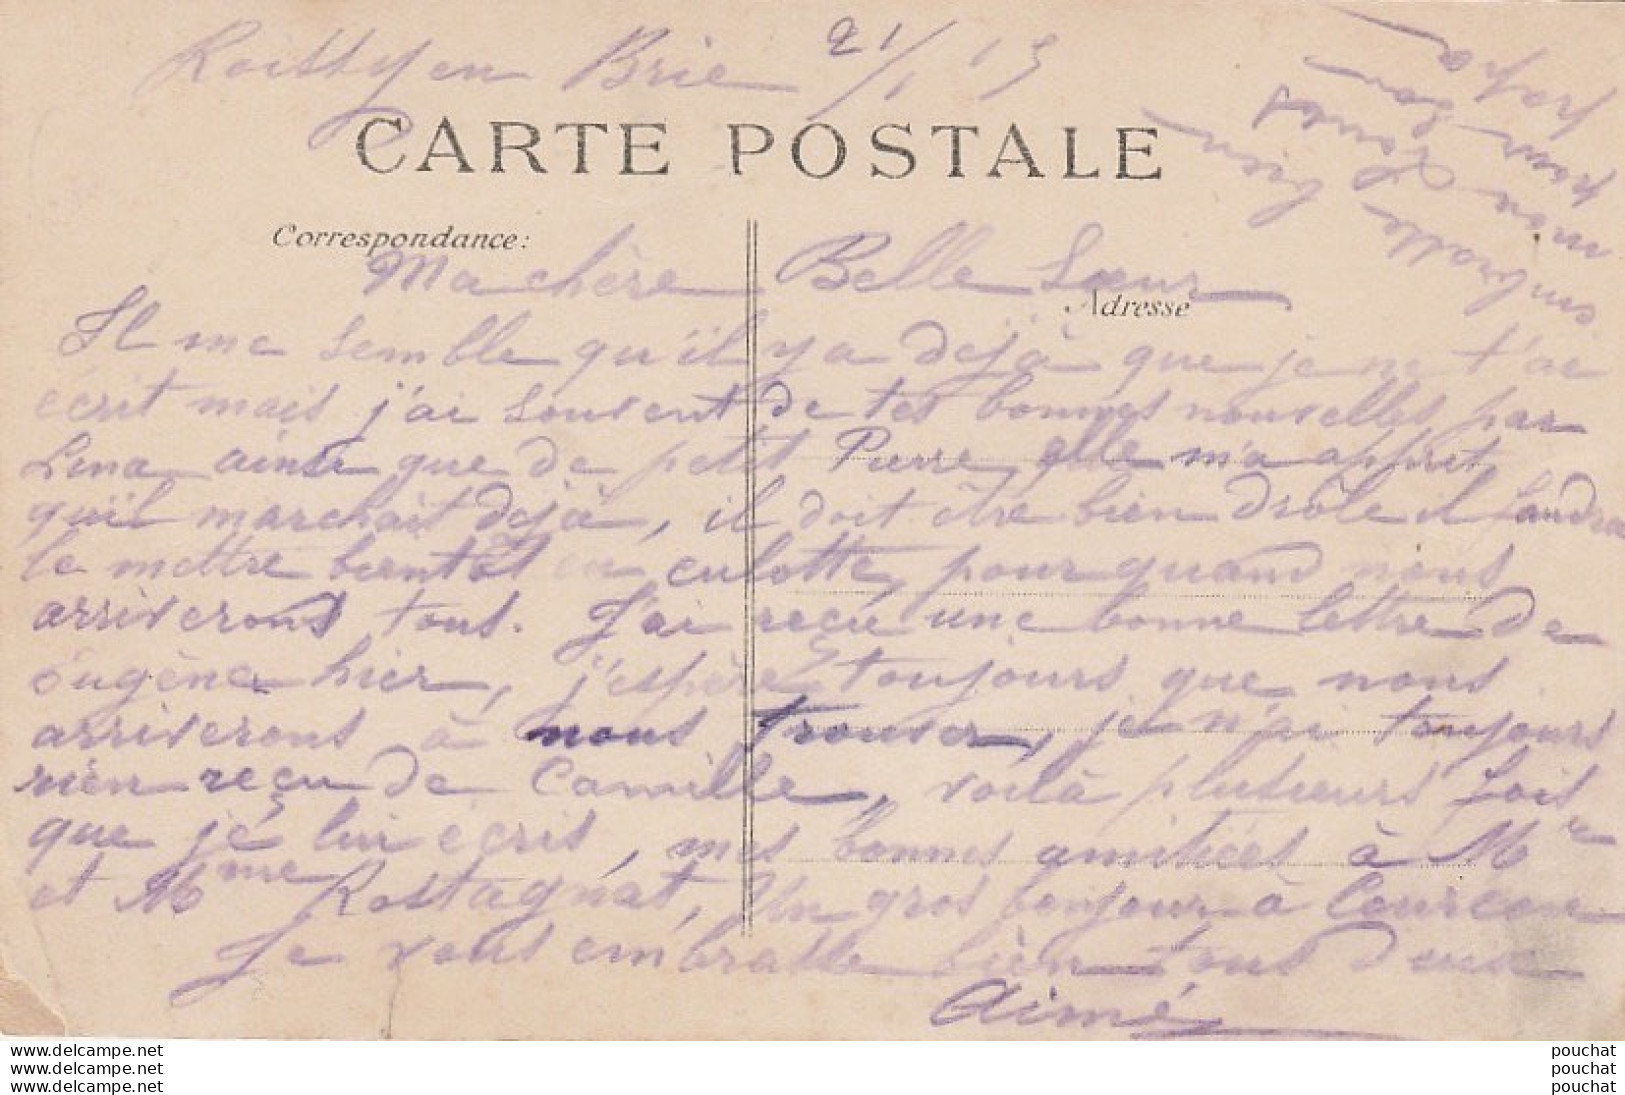 Roissy en Brie 21/1 15
CARTE POSTALE
Correspondance:
Adresse
Ma chère Belle Sœur
Il me semble qu'il y a déjà que je ne t'ai
écrit mais j'ai souvent de tes bonnes nouvelles par
Lena ainsi que de petit Pierre, elle m'a apprit
qu'il marchait déjà, il doit être bien drôle il faudra
le mettre bientôt en culotte, pour quand nous
arriverons tous. J'ai reçu une bonne lettre de
Eugène hier, j'espère toujours que nous
arriverons à nous trouver, je n'ai toujours
rien reçu de Camille, voilà plusieurs fois
que je lui écris, mes bonnes amitiées à Mr
et Mme Rostagnat, Un gros bonjour à
Je vous embrasse bien tous deux
Aimé
www.delcampe.net
www.delcampe.net
www.delcampe.net
pouchat
pouchat
pouchat